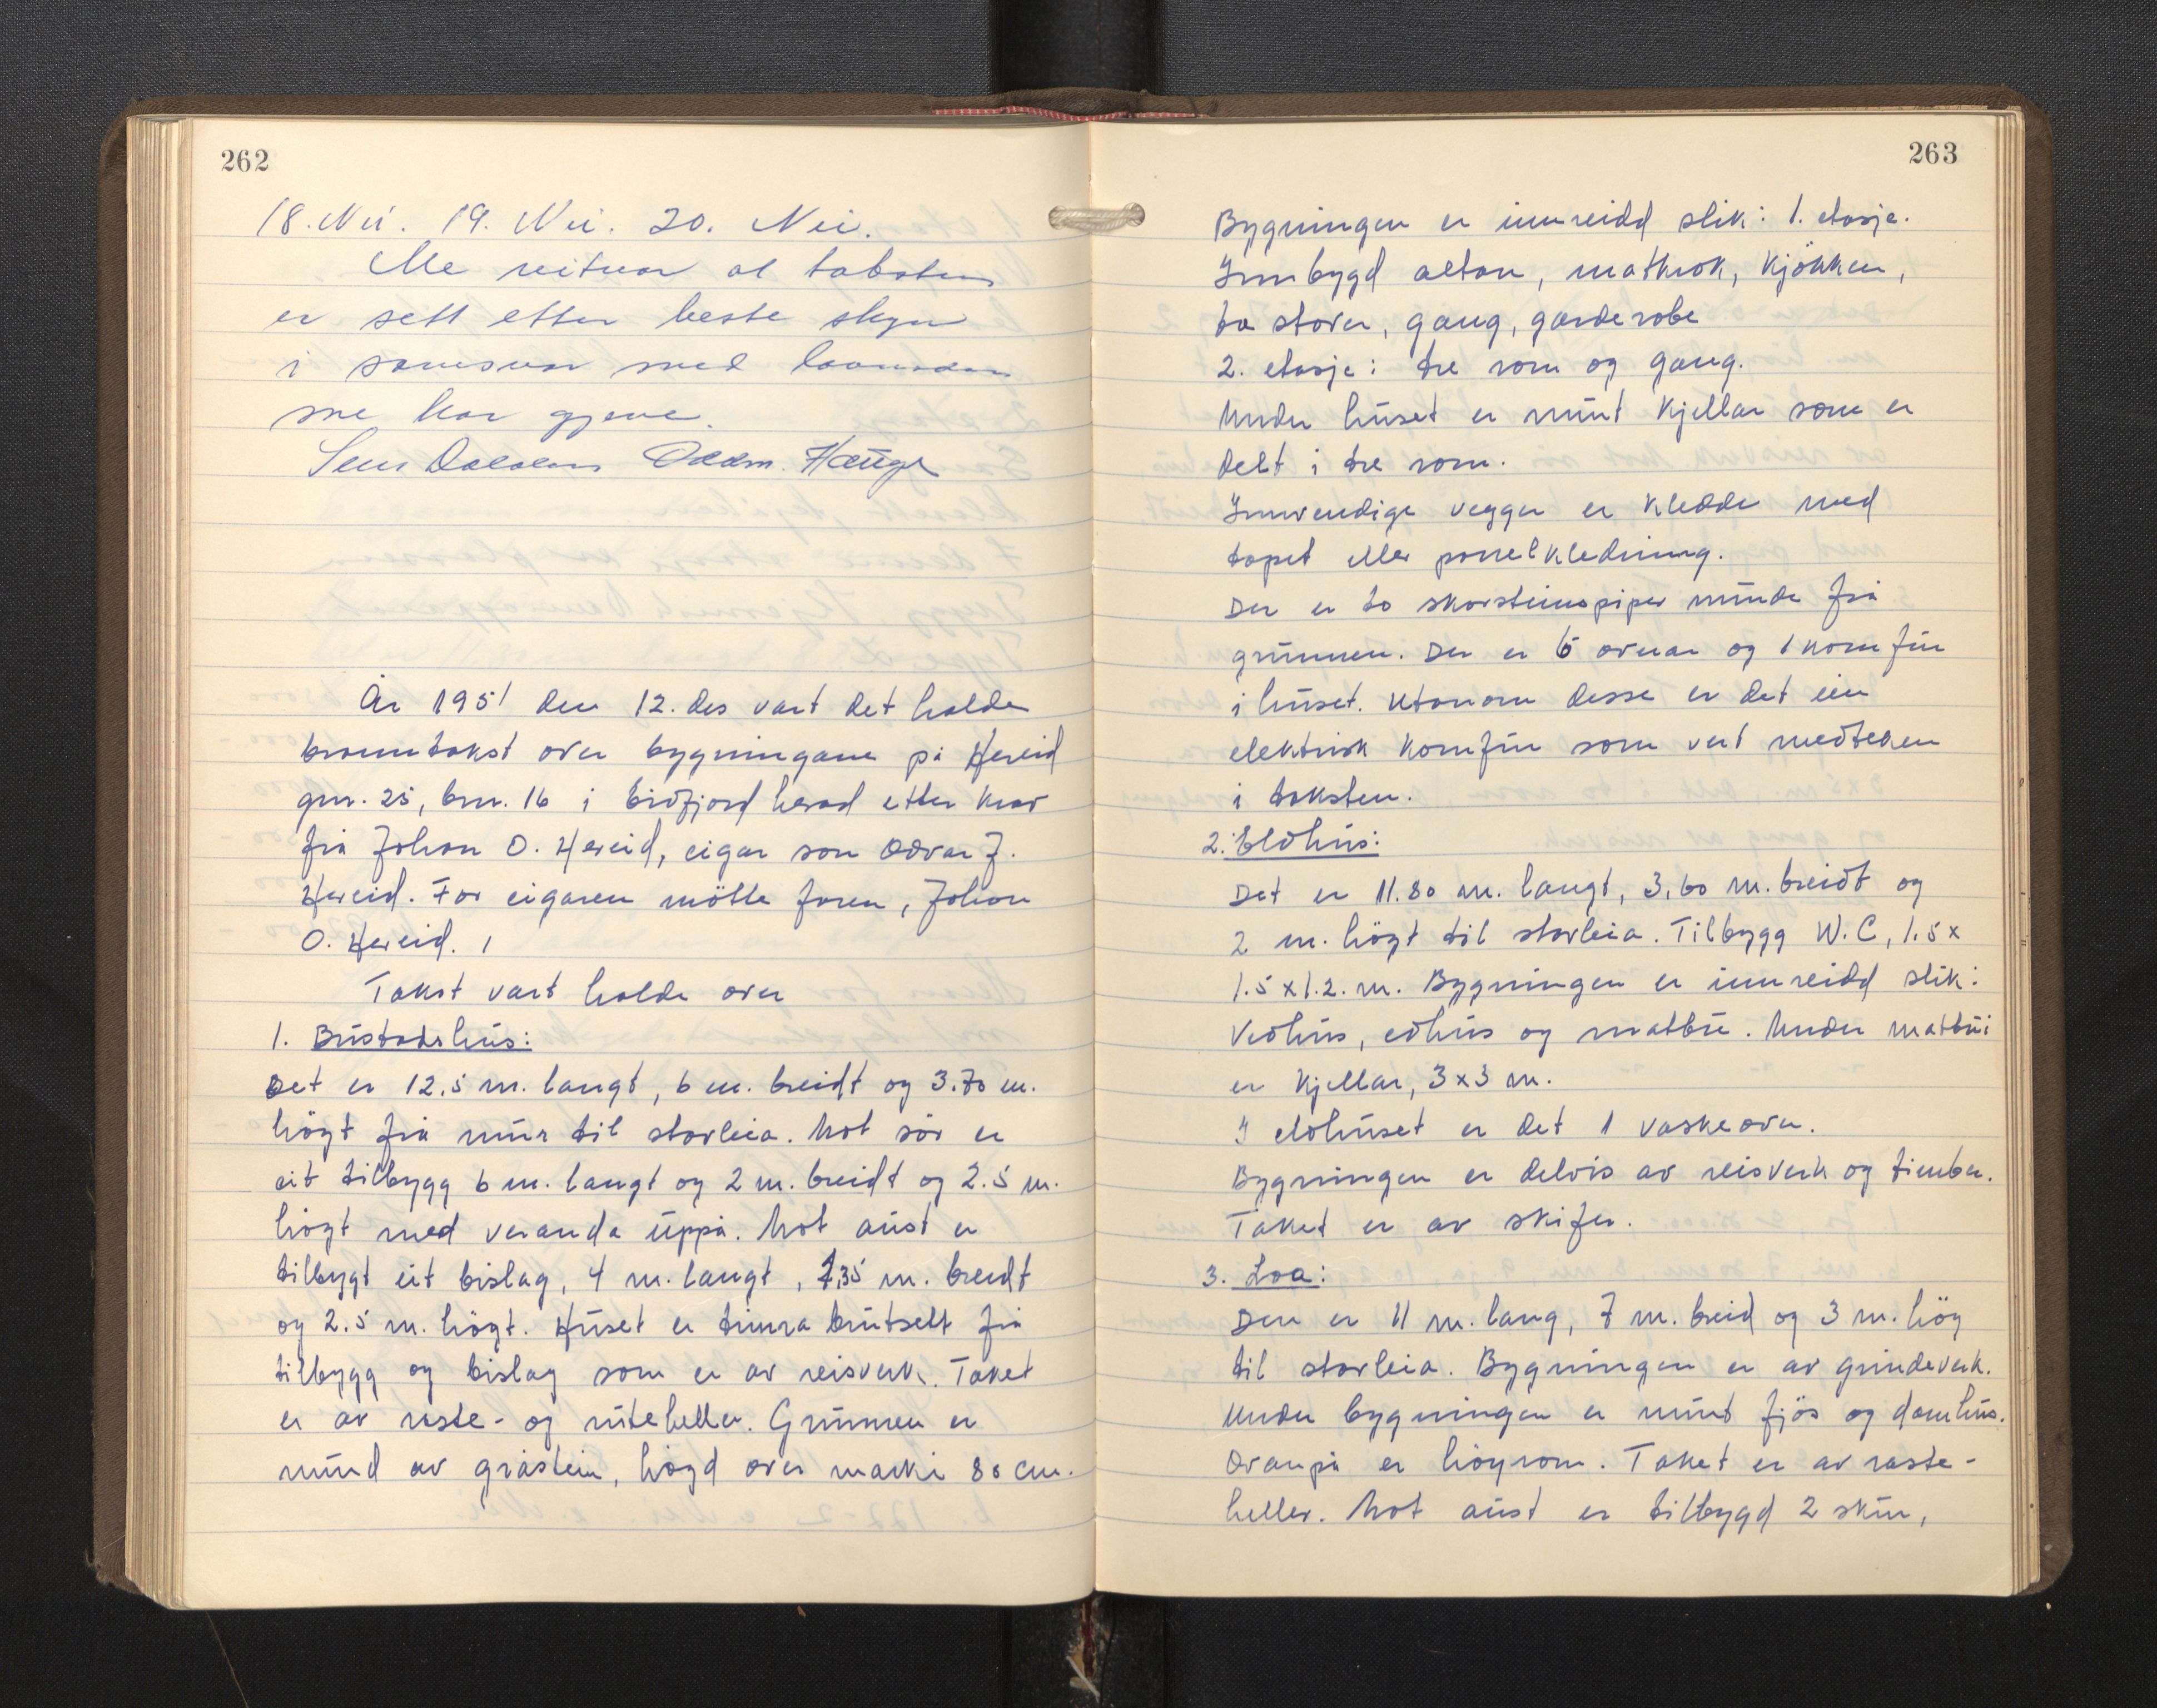 262
18. Nei. 19. Nei. 20. Nei.
Me vitnar at taksten
er sett etter beste skyn
i samsvar med lovnaden
me har gjeve.
Oddm. Hauge
År 1951 den 12. des vart det halde
branntakst over bygningane på Hereid
gnr. 25, bnr. 16 i Eidfjord herad etter krav
frå Johan O. Hereid, eigar son Odvar J.
Hereid. For eigaren mötte faren, Johan
O. Hereid.
Takst vart halde over
1. Bustadshus:
Det er 12.5 m. langt, 6 m. breidt og 3.70 m.
högt frå mur til stavleia. Mot sör er
eit tilbygg 6 m. langt og 2 m. breidt og 2.5 m.
högt med veranda uppå. Mot aust er
tilbygt eit bislag, 4 m. langt, 1,35 m. breidt
og 2.5 m. högt. Huset er timra burtsett frå
tilbygg og bislag som er av reisverk. Taket
er av raste- og ruteheller. Grunnen er
murd av gråstein, högd over marki 80 cm.
263
Bygningen er innreidd slik: 1. etasje.
Innbygd altan, matkrok, kjökken,
to stover, gang, garderobe
2. etasje: tre rom og gang.
Under huset er murt kjellar som er
delt i tre rom.
Innvendige vegger er kledde med
tapet eller panelkledning.
Der er to skorsteinspiper murde frå
grunnen. Der er 6 ovnar og 1 komfur
i huset. Utanom desse er det ein
elektrisk komfur som vert medteken
i taksten.
2. Eldhus:
Det er 11.80 m. langt, 3,60 m. breidt og
2 m. högt til stavleia. Tilbygg W.C, 1.5 x
1.5 x 1.2. m. Bygningen er innreidd slik:
Vedhus, edhus og matbu. Under matbui
er kjellar, 3 x 3 m.
I eldhuset er det 1 vaskeovn.
Bygningen er delvis av reisverk og timber.
Taket er av skifer.
3. Loa:
Den er 11 m. lang, 7 m. breid og 3 m. hög
til stavleia. Bygningen er av grindeverk.
Under bygningen er murt fjös og damhus.
Ovanpå er höyrom. Taket er av raste-
heller. Mot aust er tilbygd 2 skur,